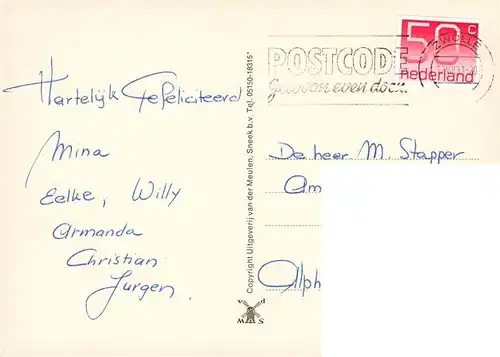 Hartelijk Gefeliciteerd
Mina
Eelke, Willy
Armanda
Christian
Jurgen.
Copyright Uitgeverij van der Meulen, Sneek b.v. Tel. 05150-18315*
v d
M S
POSTCODE
Gewoon even doen.
50 c
nederland
ZWOLLE
De heer M. Stapper
Am
Alph